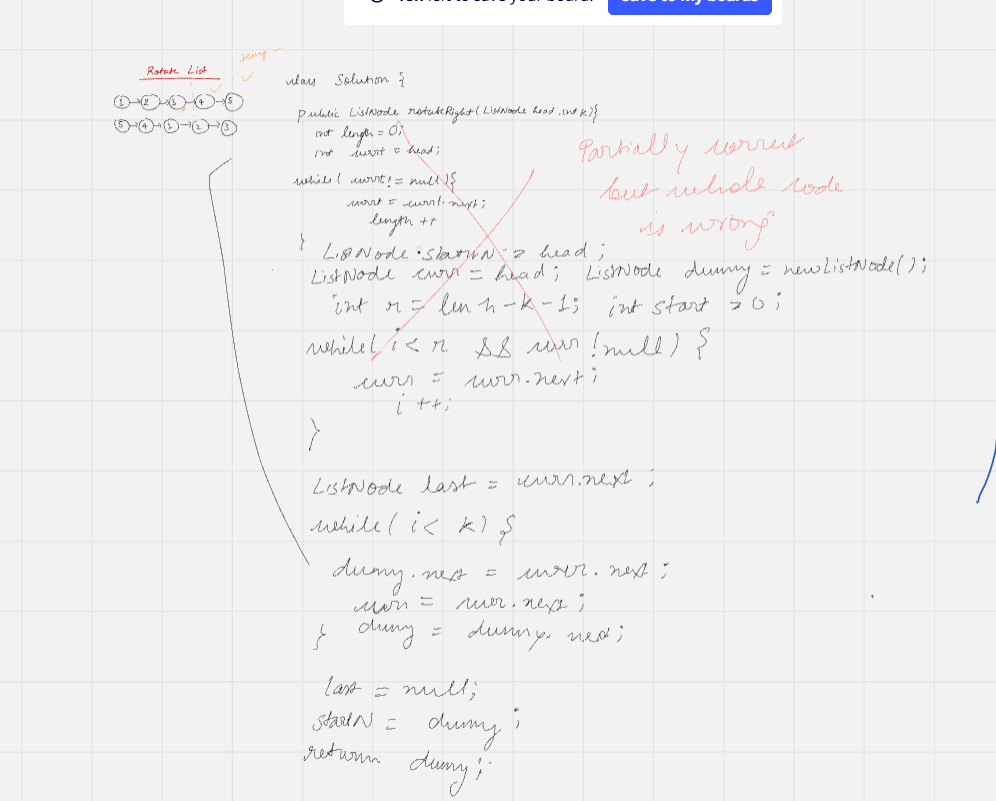 Save to my boards
Rotate List
1 → 2 → 3 → 4 → 5
5 → 4 → 1 → 2 → 3
class Solution {
public ListNode rotateRight(ListNode head, int k){
int length = 0;
int currt = head;
while( currt! = null ){
currt = currt.next;
length ++
}
ListNode startN = head;
ListNode curr = head; ListNode dummy = newListNode();
int r = len h - k - 1; int start = 0;
while( i < r && curr !null) {
curr = curr.next;
i ++;
}
ListNode last = curr.next ;
while( i < k) {
dummy.next = curr.next ;
curr = curr.next ;
} dumy = dummy.next;
last = null;
startN = dumy ;
return dumy ;
Partially correct
but whole code
is wrong